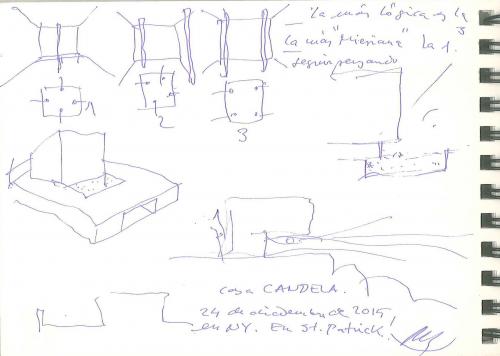 La más lógica es la 3
la más "Mieriana" la 1.
seguir pensando
1
2
3
casa CANDELA.
24 de diciembre de 2015
en NY. En St. Patrick!